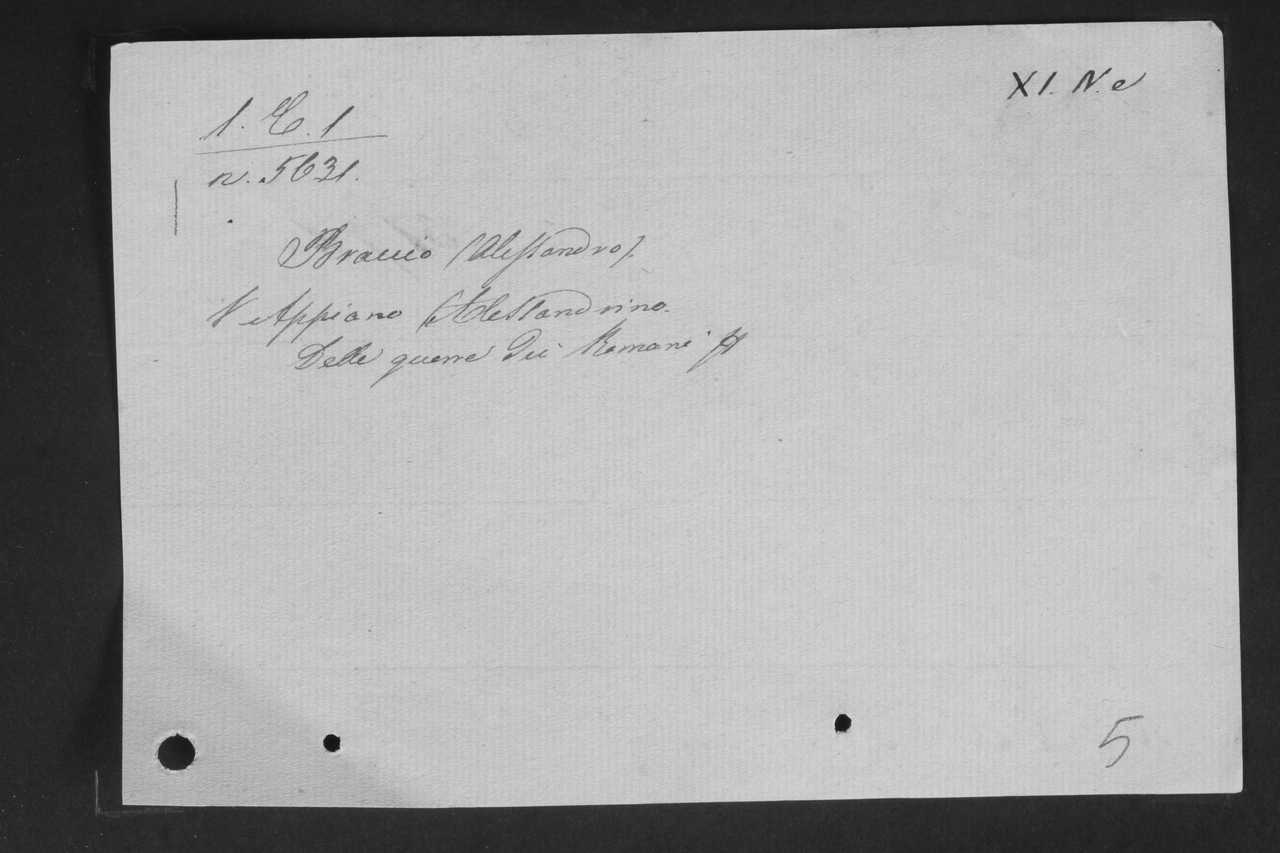 XI. N. e
1. E. 1
n. 5631.
Braccio (Alessandro).
V Appiano Alessandrino.
Delle guerre dei Romani
5